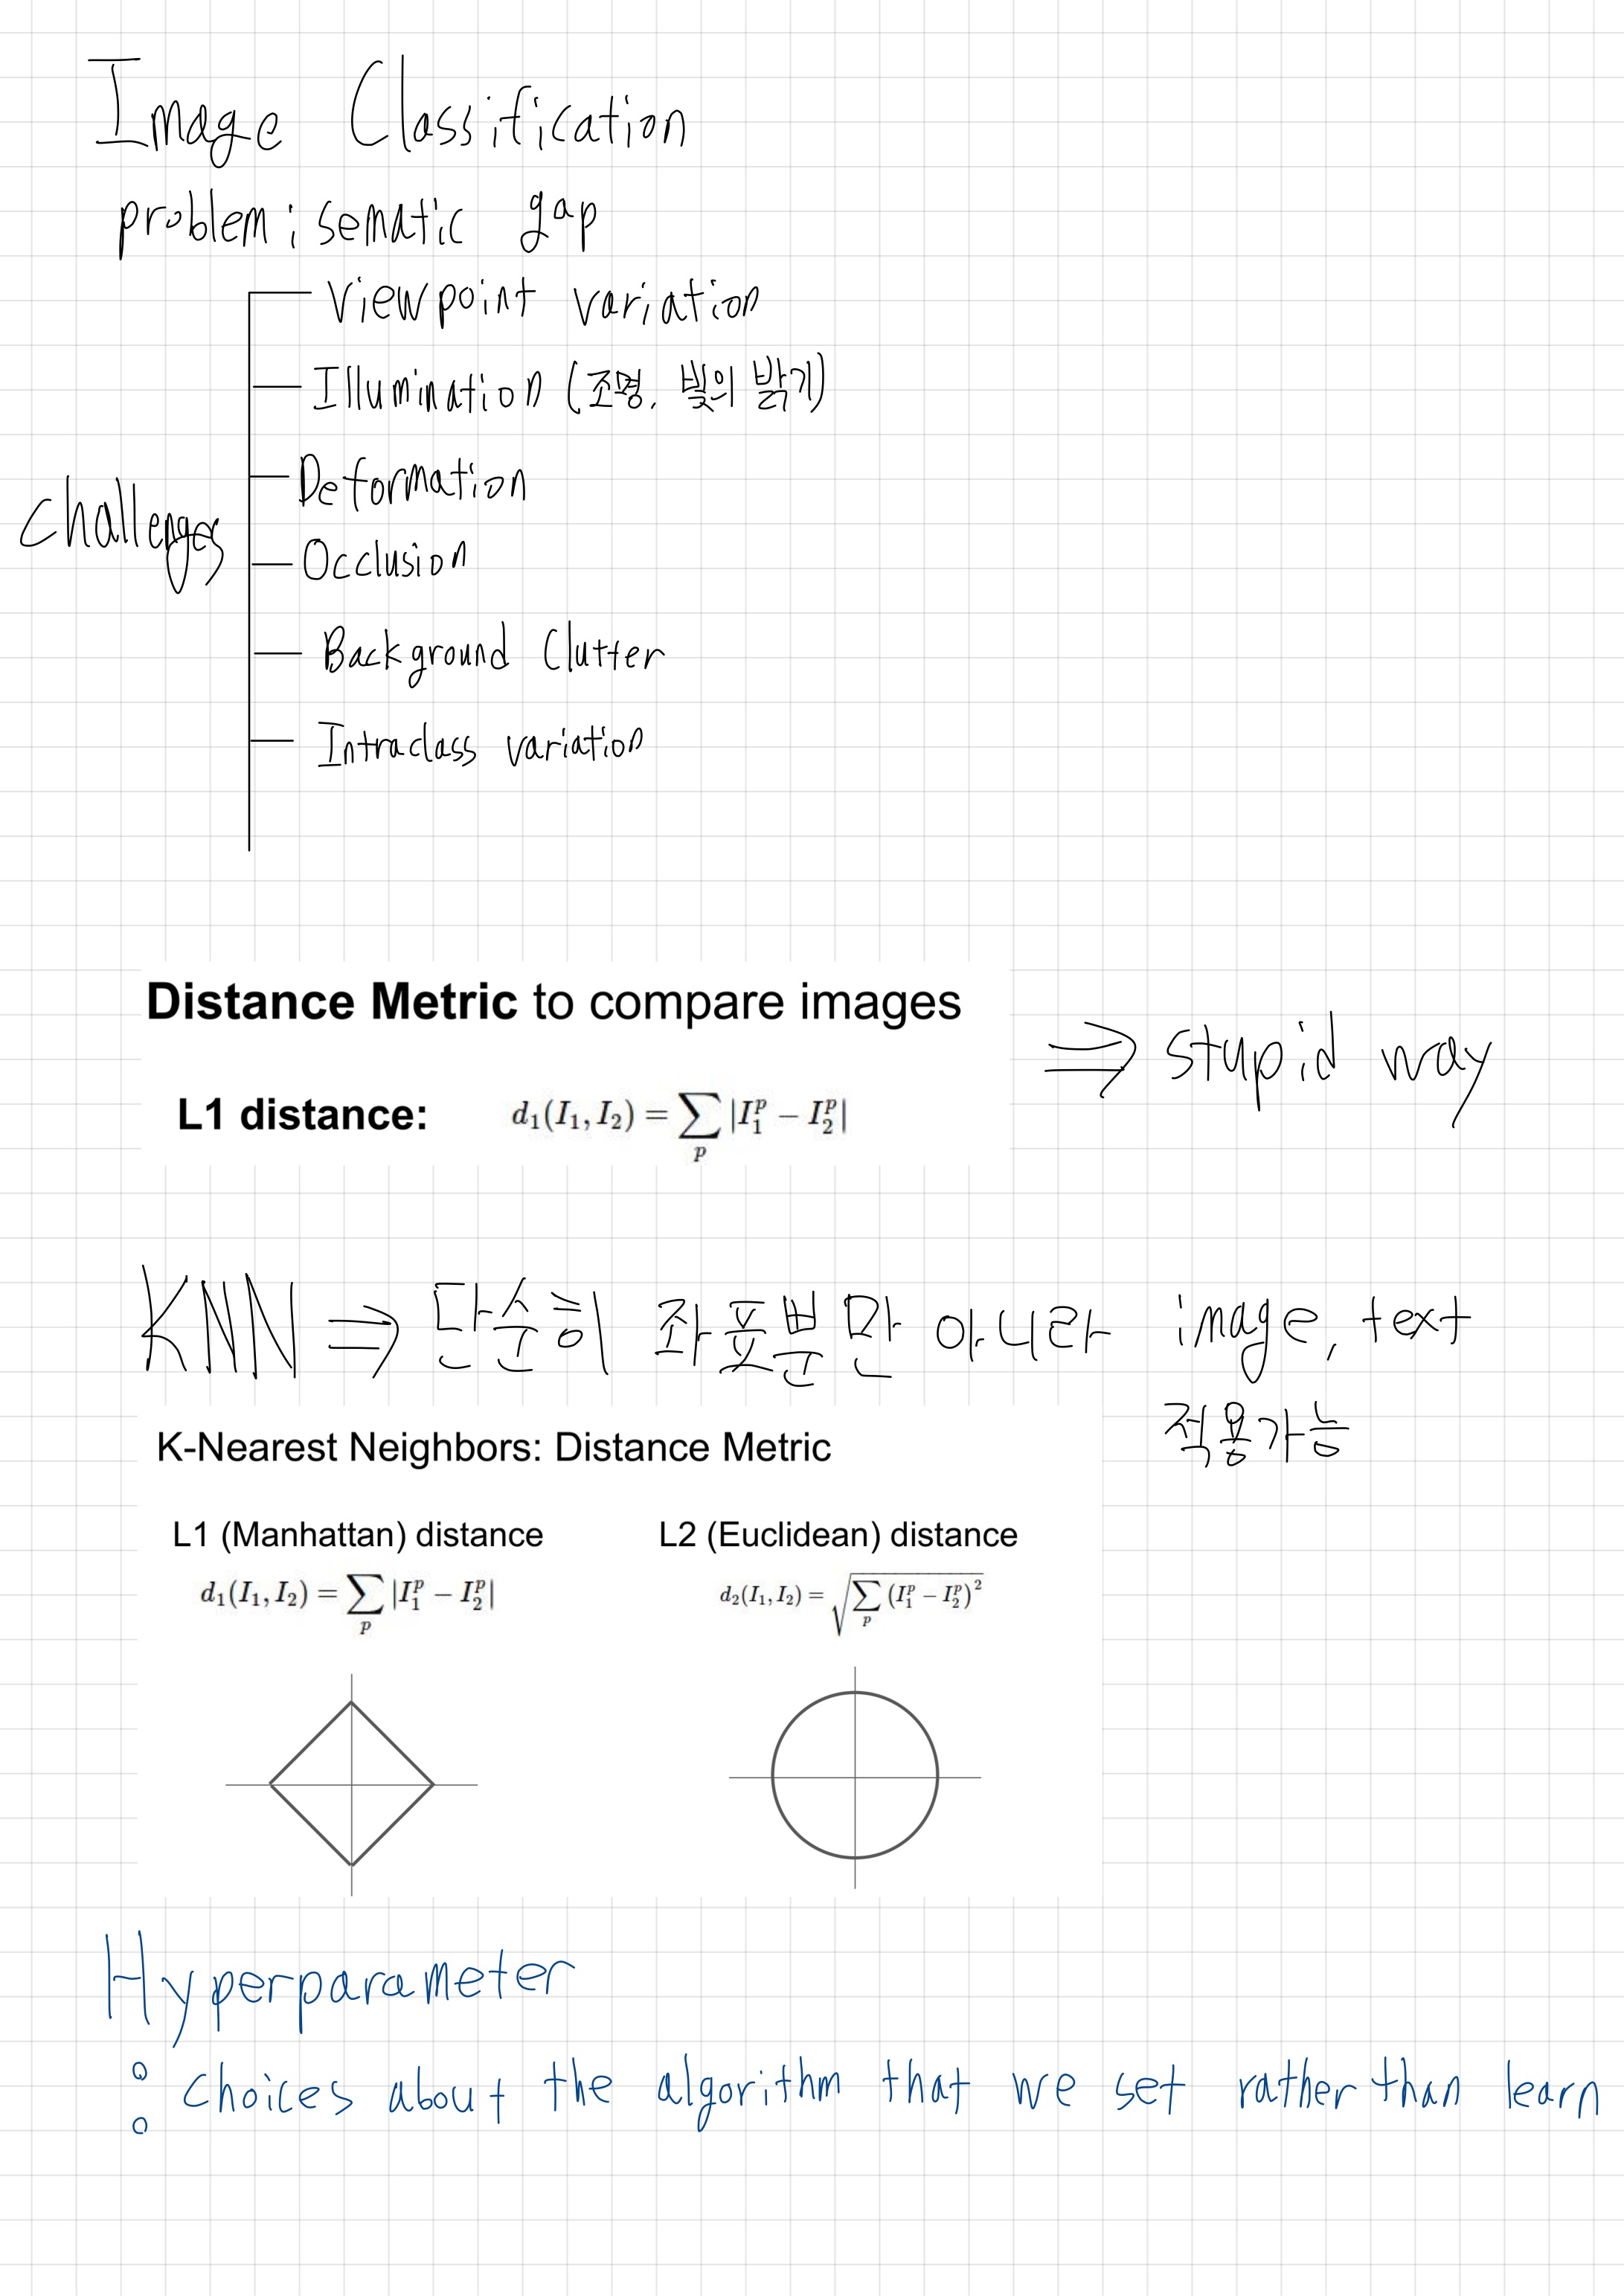 Image Classification
problem : sematic gap
Viewpoint variation
Illumination (조명, 빛의 밝기)
Deformation
challenges
Occlusion
Background Clutter
Intraclass variation
Distance Metric to compare images
⇒ stupid way
L1 distance: d₁(I₁, I₂) = ∑ₚ |I₁ᵖ − I₂ᵖ|
KNN ⇒ 단순히 좌표뿐만 아니라 image, text
적용가능
K-Nearest Neighbors: Distance Metric
L1 (Manhattan) distance L2 (Euclidean) distance
d₁(I₁, I₂) = ∑ₚ |I₁ᵖ − I₂ᵖ| d₂(I₁, I₂) = √(∑ₚ (I₁ᵖ − I₂ᵖ)²)
Hyperparameter
: choices about the algorithm that we set rather than learn